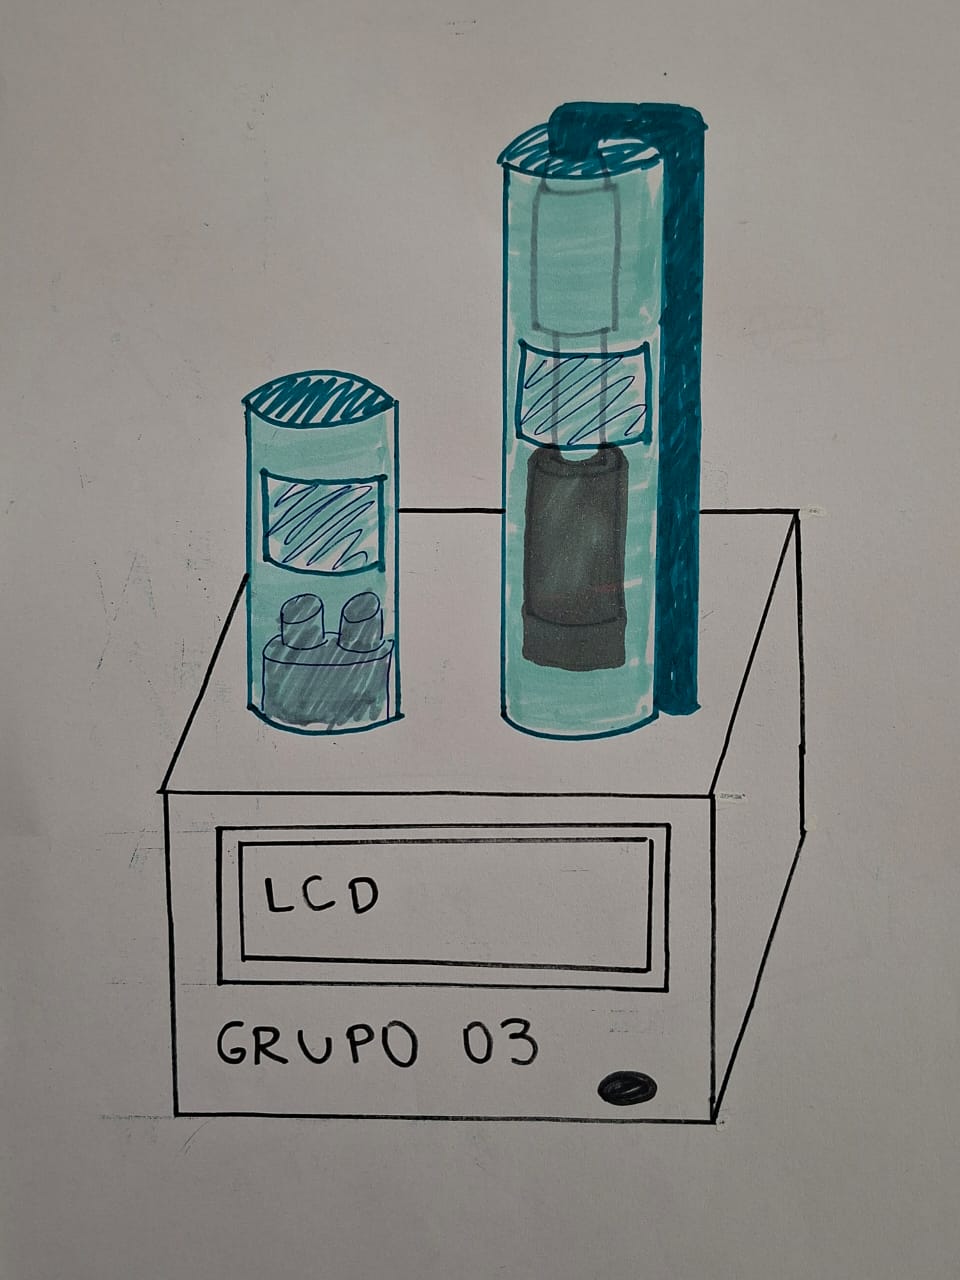 LCD
GRUPO 03